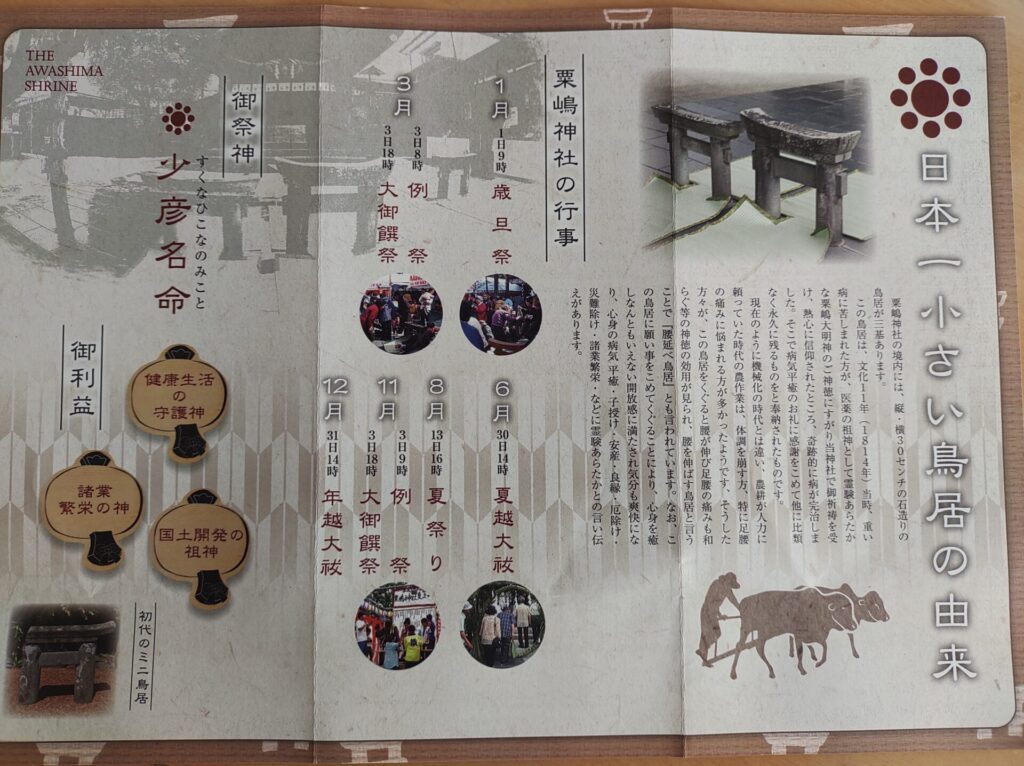 日本一小さい鳥居の由来
粟嶋神社の境内には、縦・横30センチの石造りの
鳥居が三基あります。
この鳥居は、文化11年（1814年）当時、重い
病に苦しまれた方が、医薬の祖神として霊験あらたか
な粟嶋大明神のご神徳にすがり当神社で御祈祷を受
け、熱心に信仰されたところ、奇跡的に病が完治しま
した。そこで病気平癒のお礼に感謝をこめて他に比類
なく永久に残るものをと奉納されたものです。
現在のように機械化の時代とは違い、農耕が人力に
頼っていた時代の農作業は、体調を崩す方、特に足腰
の痛みに悩まれる方が多かったようです。そうした
方々が、この鳥居をくぐると腰が伸び足腰の痛みも和
らぐ等の神徳の効用が見られ、腰を伸ばす鳥居と言う
ことで『腰延べ鳥居』とも言われています。なお、こ
の鳥居に願い事をこめてくぐることにより、心身を癒
しなんともいえない開放感に満たされ気分も爽快にな
り、心身の病気平癒・子授け・安産・良縁・厄除け・
災難除け・諸業繁栄・などに霊験あらたかとの言い伝
えがあります。
粟嶋神社の行事
1月
1日9時 歳旦祭
3月
3日8時 例祭
3日18時 大御饌祭
6月
30日14時 夏越大祓
8月
13日16時 夏祭り
11月
3日9時 例祭
3日18時 大御饌祭
12月
31日14時 年越大祓
THE
AWASHIMA
SHRINE
御祭神
すくなひこなのみこと
少彦名命
御利益
健康生活
の
守護神
諸業
繁栄の神
国土開発の
祖神
初代のミニ鳥居